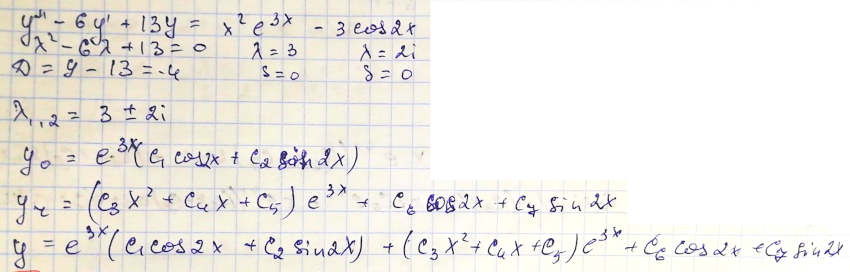 y'' - 6y' + 13y = x² e^{3x} - 3 cos2x
λ² - 6λ + 13 = 0 λ = 3 λ = 2i
D = 9 - 13 = -4 s = 0 s = 0
λ₁,₂ = 3 ± 2i
y₀ = e^{3x}(C₁ cos2x + C₂ sin 2x)
yᵣ = (C₃ x² + C₄ x + C₅) e^{3x} + C₆ cos2x + C₇ sin 2x
y = e^{3x} (C₁ cos 2x + C₂ sin 2x) + (C₃ x² + C₄ x + C₅) e^{3x} + C₆ cos 2x + C₇ sin 2x